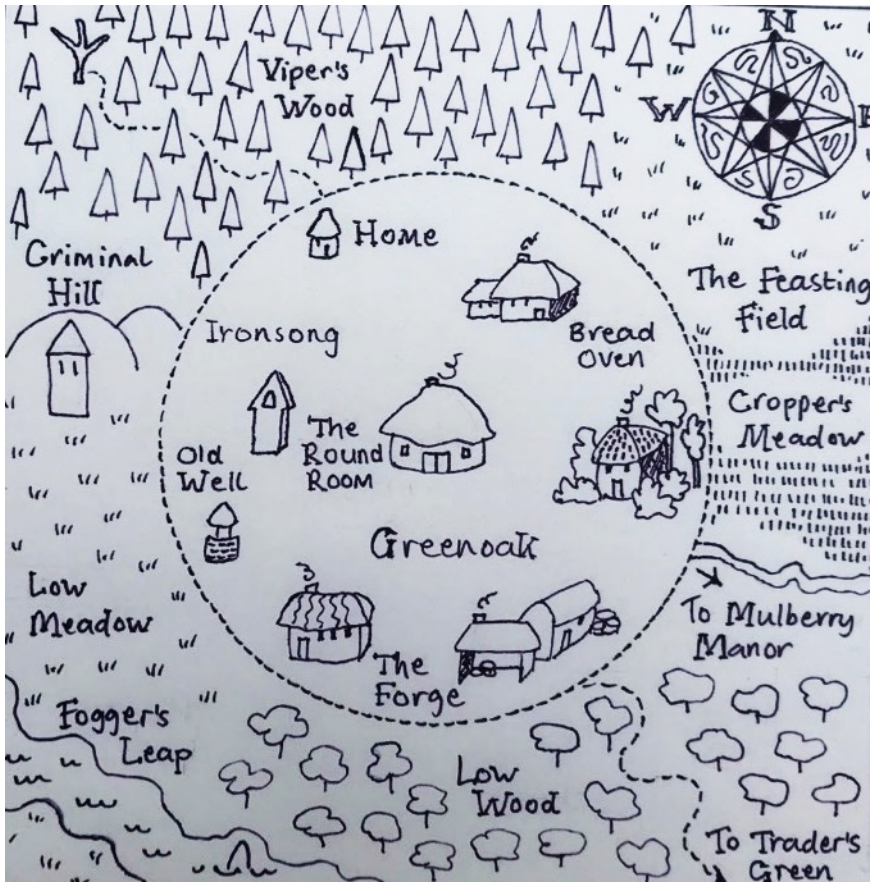 N
Viper's
Wood
W
E
S
Home
Griminal
Hill
The Feasting
Field
Ironsong
Bread
Oven
Cropper's
Meadow
The
Round
Room
Old
Well
Greenoak
Low
Meadow
To Mulberry
Manor
The
Forge
Fogger's
Leap
Low
Wood
To Trader's
Green